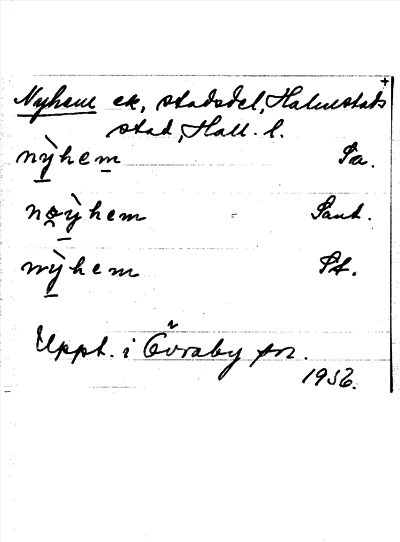 Nyhem ek, stadsdel, Halmstads
stad, Hall. l.
nỳhem Pa.
nøỳhem Pant.
nỳhem Pt.
Uppt. i Övraby sn.
1956.